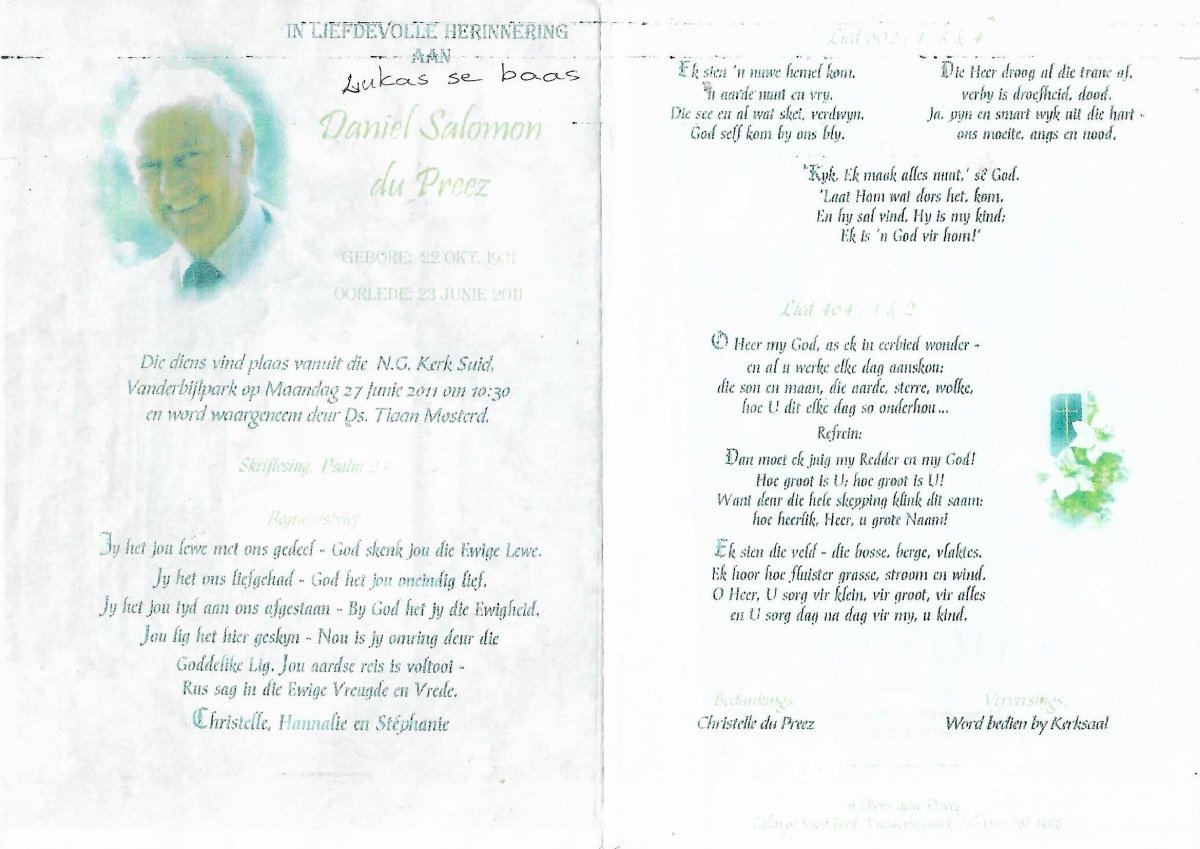 IN LIEFDEVOLLE HERINNERING
AAN
Lukas se baas
Daniel Salomon
du Preez
GEBORE: 22 OKT. 1931
OORLEDE: 23 JUNIE 2011
Die diens vind plaas vanuit die N.G. Kerk Suid,
Vanderbijlpark op Maandag 27 Junie 2011 om 10:30
en word waargeneem deur Ds. Tiaan Mosterd.
Skriflesing: Psalm 23
Begrafnisbrief
Jy het jou lewe met ons gedeel - God skenk jou die Ewige Lewe.
Jy het ons liefgehad - God het jou oneindig lief.
Jy het jou tyd aan ons afgestaan - By God het jy die Ewigheid.
Jou lig het hier geskyn - Nou is jy omring deur die
Goddelike Lig. Jou aardse reis is voltooi -
Rus sag in die Ewige Vreugde en Vrede.
Christelle, Hannalie en Stéphanie
Lied 602 : 1, 3 & 4
Ek sien 'n nuwe hemel kom,
'n aarde nuut en vry.
Die see en al wat skei, verdwyn.
God self kom by ons bly.
Die Heer droog af die trane af,
verby is droefheid, dood.
Ja, pyn en smart wyk uit die hart -
ons moeite, angs en nood.
"Kyk, Ek maak alles nuut,' sê God.
'Laat Hom wat dors het, kom,
En hy sal vind, Hy is my kind;
Ek is 'n God vir hom!'
Lied 464 : 1 & 2
O Heer my God, as ek in eerbied wonder -
en al u werke elke dag aanskou:
die son en maan, die aarde, sterre, wolke,
hoe U dit elke dag so onderhou...
Refrein:
Dan moet ek juig my Redder en my God!
Hoe groot is U; hoe groot is U!
Want deur die hele skepping klink dit saam:
hoe heerlik, Heer, u grote Naam!
Ek sien die veld - die bosse, berge, vlaktes.
Ek hoor hoe fluister grasse, stroom en wind.
O Heer, U sorg vir klein, vir groot, vir alles
en U sorg dag na dag vir my, u kind.
Bedankings:
Christelle du Preez
Verversings:
Word bedien by Kerksaal
'n Diens deur